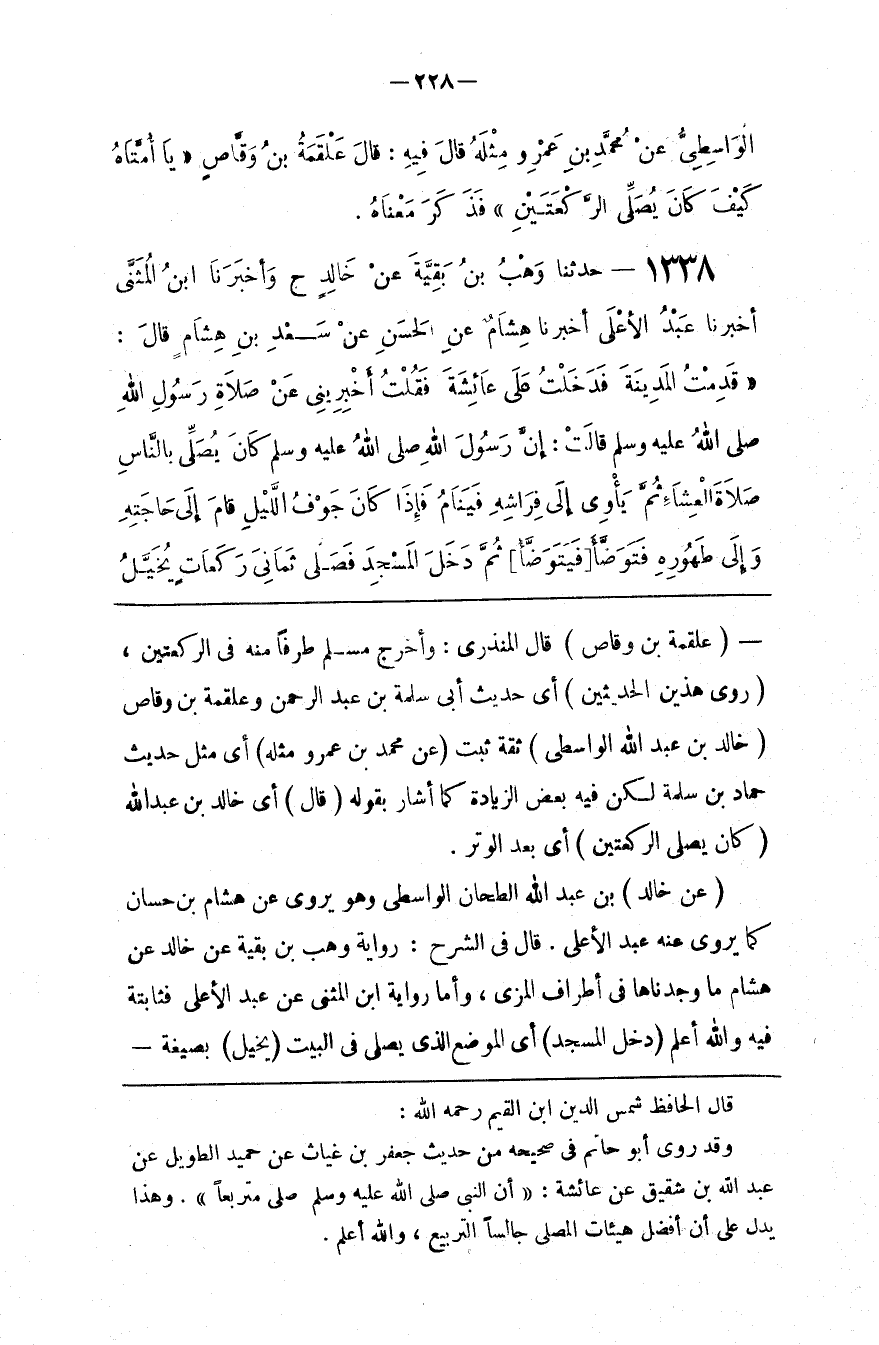 —٢٢٨—
الْوَاسِطِيُّ عنْ مُحمَّدِ بنِ عَمْرٍو مِثْلَهُ قالَ فِيهِ : قالَ عَلْقَمَةُ بنُ وَقَّاصٍ « يا أُمَّتَاهُ
كَيْفَ كَانَ يُصَلِّى الرَّكْعَتَيْنِ » فَذَكَرَ مَعْنَاهُ .
١٣٣٨ — حدثنا وَهْبُ بنُ بَقِيَّةَ عنْ خَالِدٍ ح وَأخبَرَنَا ابنُ الْمُثَنَّى
أخبرنا عَبْدُ الأعْلَى أخبرنا هِشَامٌ عنِ الْحَسَنِ عنْ سَعْدِ بنِ هِشَامٍ قالَ :
« قَدِمْتُ الْمَدِينَةَ فَدَخَلْتُ عَلَى عَائِشَةَ فَقُلْتُ أَخْبِرِينِى عَنْ صَلَاةِ رَسُولِ اللهِ
صلى اللهُ عليه وسلم قالَتْ : إنَّ رَسُولَ اللهِ صلى اللهُ عليه وسلم كَانَ يُصَلِّى بالنَّاسِ
صَلَاةَ الْعِشَاءِ ثُمَّ يَأْوِى إلَى فِرَاشِهِ فَيَنَامُ فَإِذَا كَانَ جَوْفُ اللَّيْلِ قامَ إلَى حَاجَتِهِ
وَإِلَى طَهُورِهِ فَتَوَضَّأَ [فَيَتَوَضَّأُ] ثُمَّ دَخَلَ الْمَسْجِدَ فَصَلَّى ثَمَانِىَ رَكَعَاتٍ يُخَيَّلُ
— ( علقمة بن وقاص ) قال المنذرى : وأخرج مسلم طرفاً منه فى الركعتين ،
( روى هذين الحديثين ) أى حديث أبى سلمة بن عبد الرحمن وعلقمة بن وقاص
( خالد بن عبد الله الواسطى ) ثقة ثبت ( عن محمد بن عمرو مثله ) أى مثل حديث
حماد بن سلمة لكن فيه بعض الزيادة كما أشار بقوله ( قال ) أى خالد بن عبدالله
( كان يصلى الركعتين ) أى بعد الوتر .
( عن خالد ) بن عبد الله الطحان الواسطى وهو يروى عن هشام بن حسان
كما يروى عنه عبد الأعلى . قال فى الشرح : رواية وهب بن بقية عن خالد عن
هشام ما وجدناها فى أطراف المزى ، وأما رواية ابن المثنى عن عبد الأعلى فثابتة
فيه والله أعلم ( دخل المسجد ) أى الموضع الذى يصلى فى البيت ( يخيل ) بصيغة —
قال الحافظ شمس الدين ابن القيم رحمه الله :
وقد روى أبو حاتم فى صحيحه من حديث جعفر بن غياث عن حميد الطويل عن
عبد الله بن شقيق عن عائشة : « أن النبى صلى الله عليه وسلم صلى متربعاً » . وهذا
يدل على أن أفضل هيئات المصلى جالساً التربيع ، والله أعلم .